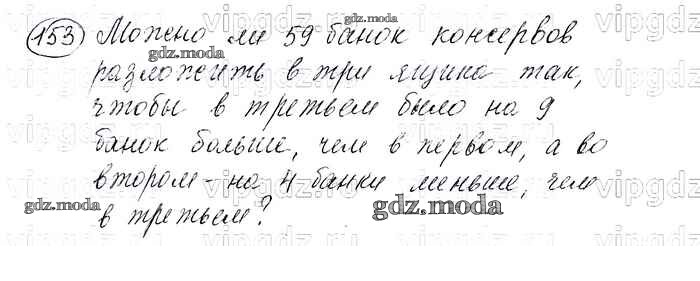 153 Можно ли 59 банок консервов
разложить в три ящика так,
чтобы в третьем было на 9
банок больше, чем в первом, а во
втором - на 4 банки меньше, чем
в третьем?
gdz.moda
gdz.moda
gdz.moda
gdz.moda
vipgdz